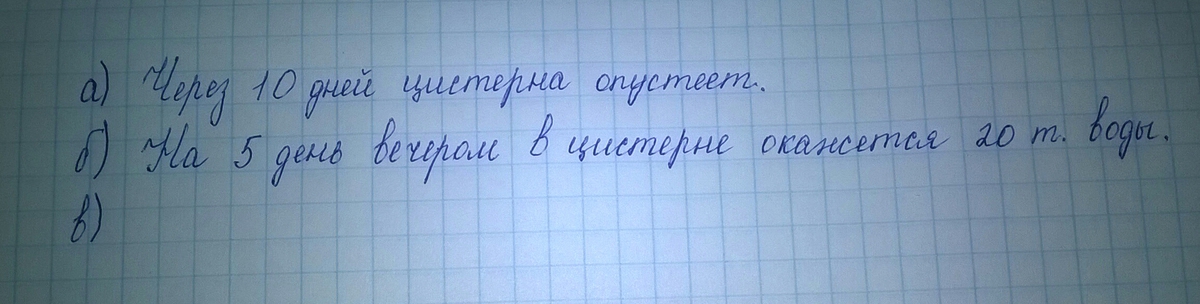 а) Через 10 дней цистерна опустеет.
б) На 5 день вечером в цистерне окажется 20 т. воды.
в)